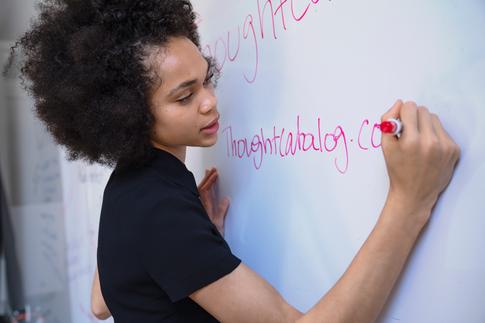 oughtca
Thoughtcatalog.co